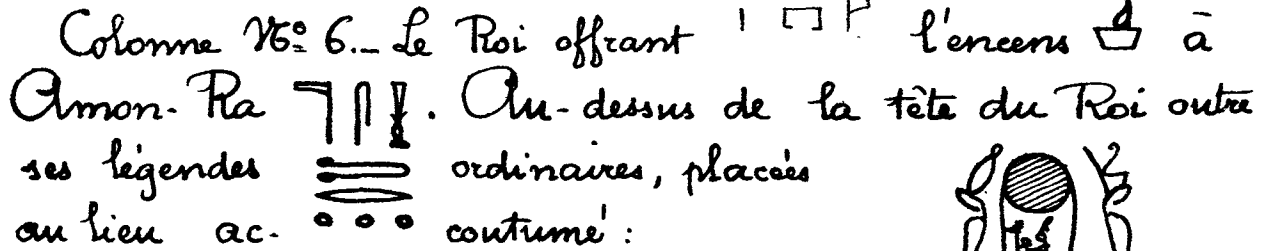 Colonne N.º 6._ Le Roi offrant l'encens à
Amon-Ra . Au-dessus de la tête du Roi outre
ses légendes ordinaires, placées
au lieu ac- coutumé :